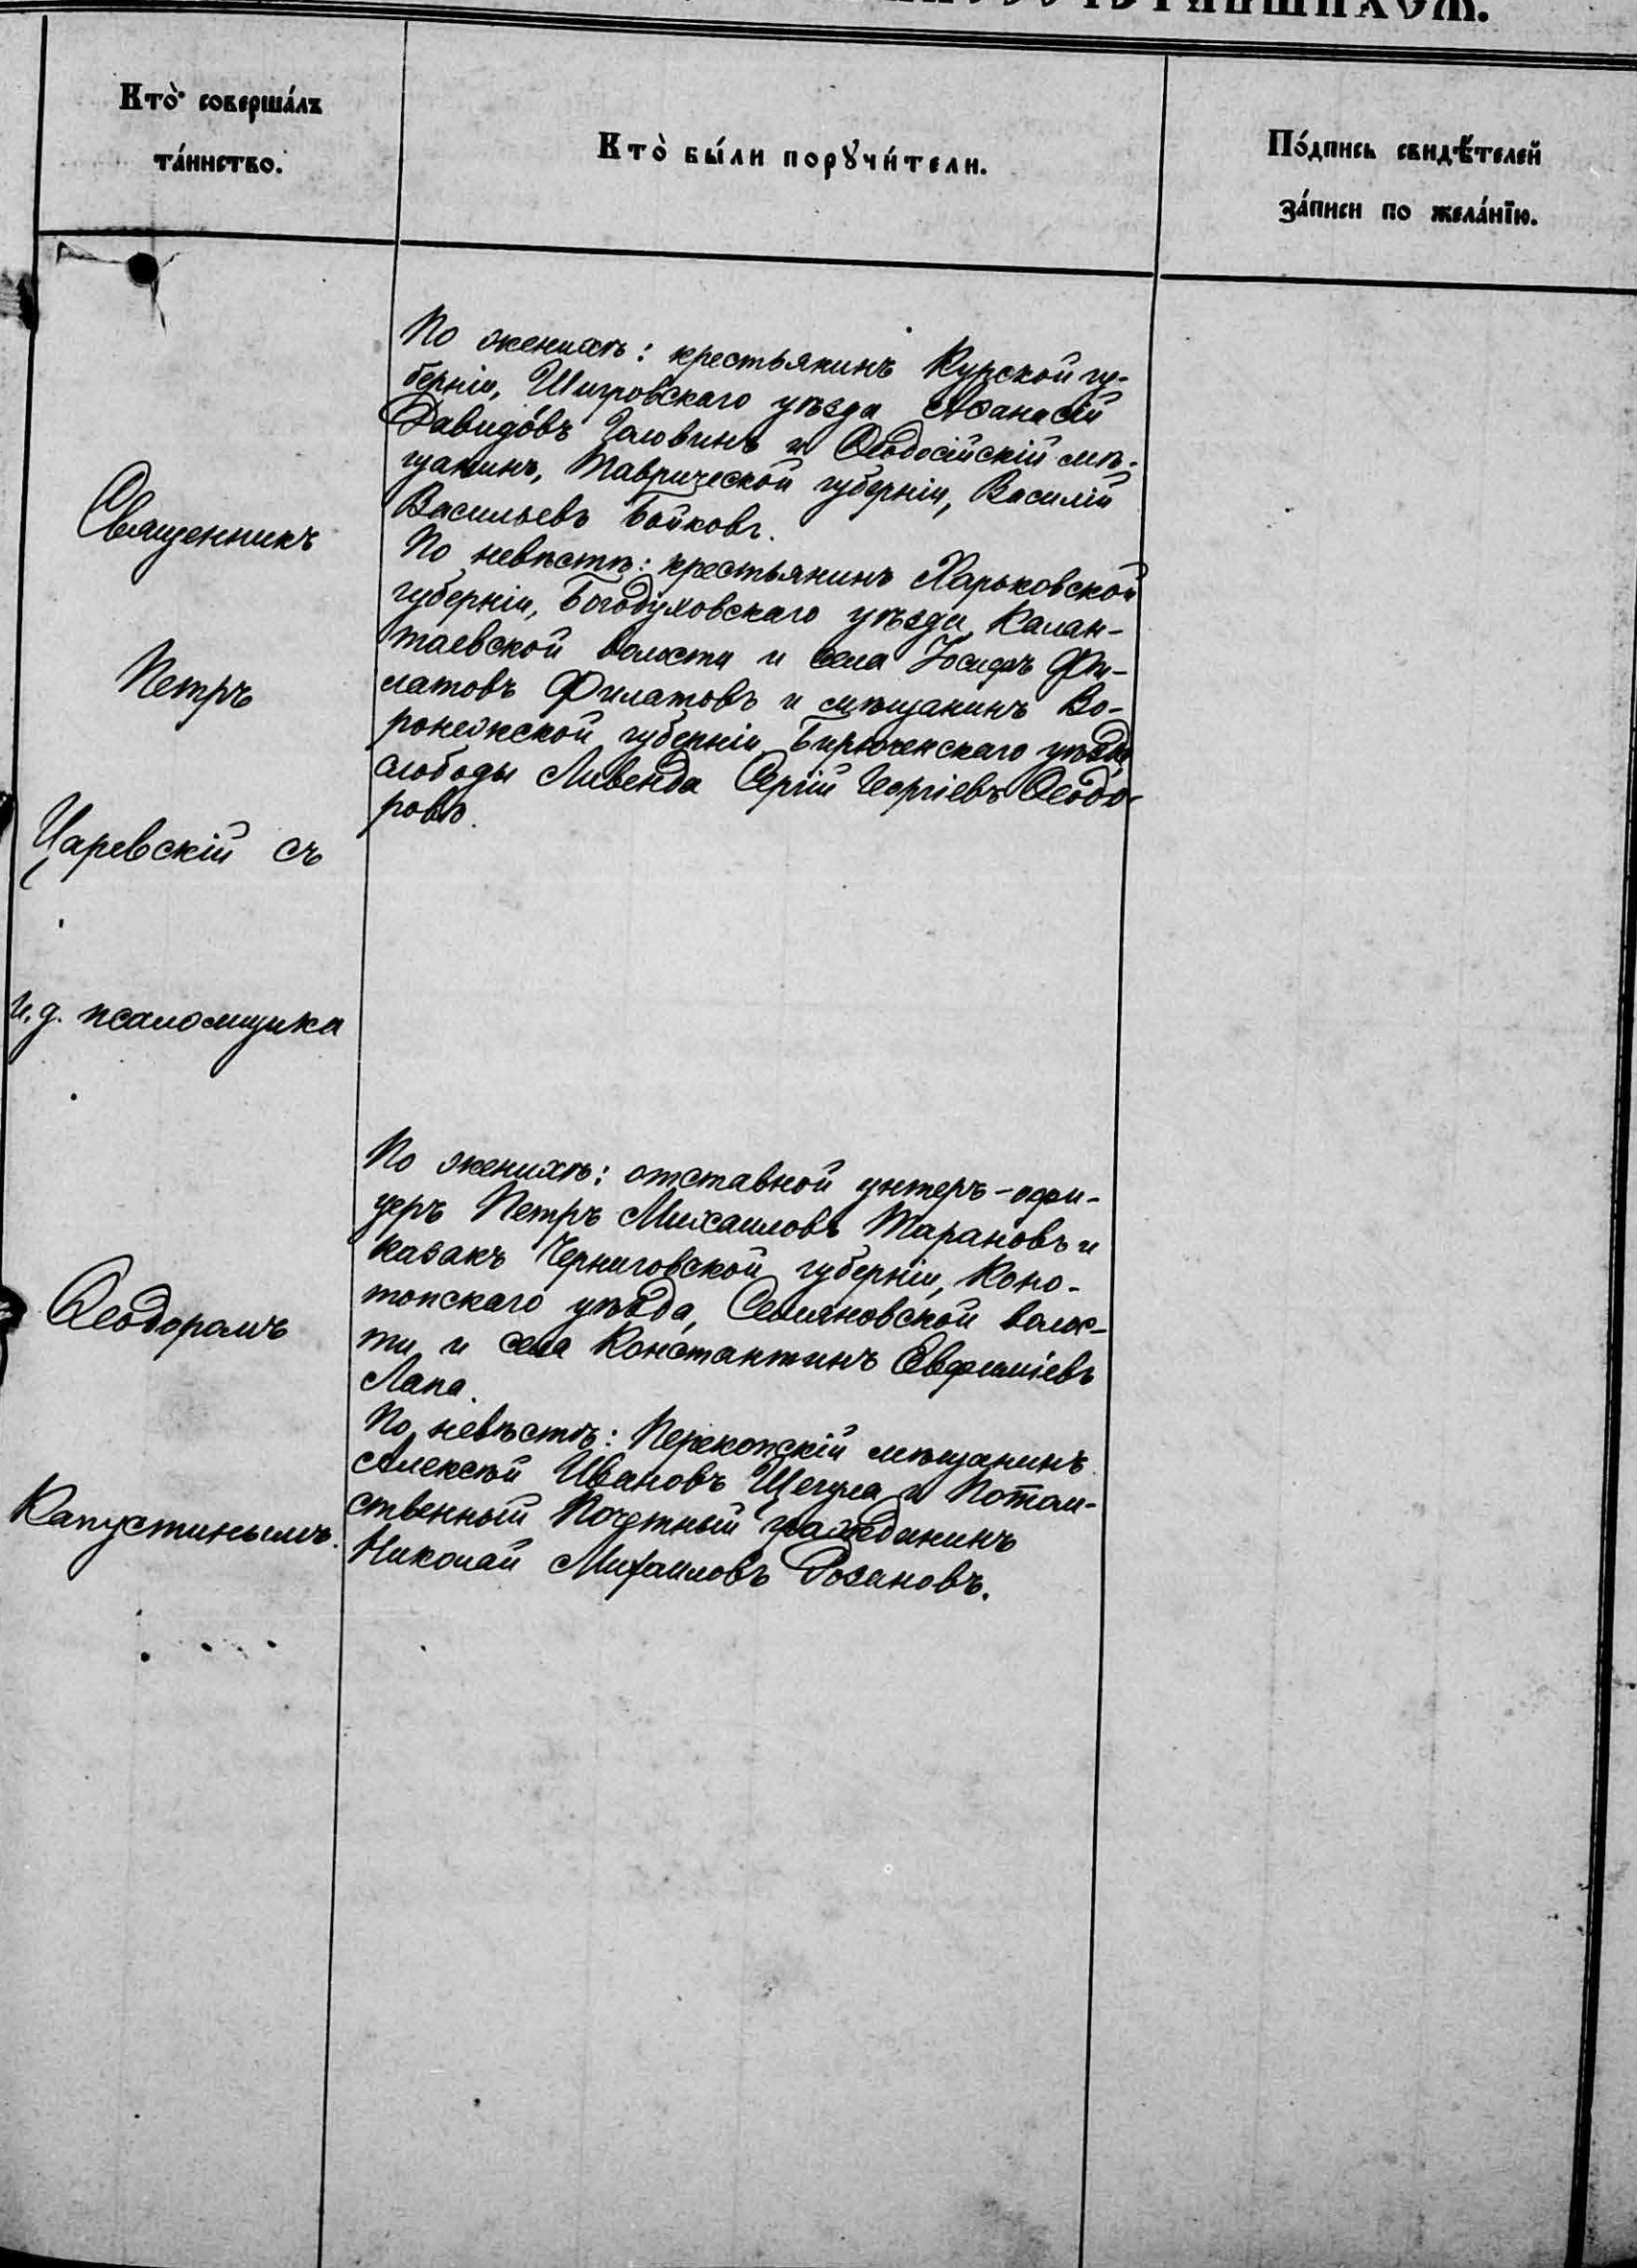 Кто̀ соверша́лъ
та́инство.
Кто̀ бы́ли порꙋчи́тели.
По́дпись свидѣ́телей
за́писи по жела́нїю.
По женихѣ: крестьянинъ Курской гу-
берніи, Щигровскаго уѣзда Аѳанасій
Давидовъ Головинъ и Ѳеодосійскій мѣ-
щанинъ, Таврической губерніи, Василій
Васильевъ Бойковъ.
По невѣстѣ: крестьянинъ Харьковской
губерніи, Богодуховскаго уѣзда, Калан-
таевской волости и села Іосифъ Фи-
латовъ Филатовъ и мѣщанинъ Во-
ронежской губерніи Бирюченскаго уѣзда,
слободы Ливенда Сергій Георгіевъ Ѳеодо-
ровъ.
Священникъ
Петръ
Царевскій съ
и. д. псаломщика
Ѳеодоромъ
Капустинымъ.
По женихѣ: отставной унтеръ-офи-
церъ Петръ Михаиловъ Тарановъ и
казакъ Черниговской губерніи, Коно-
топскаго уѣзда, волос-
ти и села Константинъ Евфиміевъ
Лапа.
По невѣстѣ: Перекопскій мѣщанинъ
Алексѣй Ивановъ Щегула и Потом-
ственный Почетный гражданинъ
Николай Михаиловъ Розановъ.